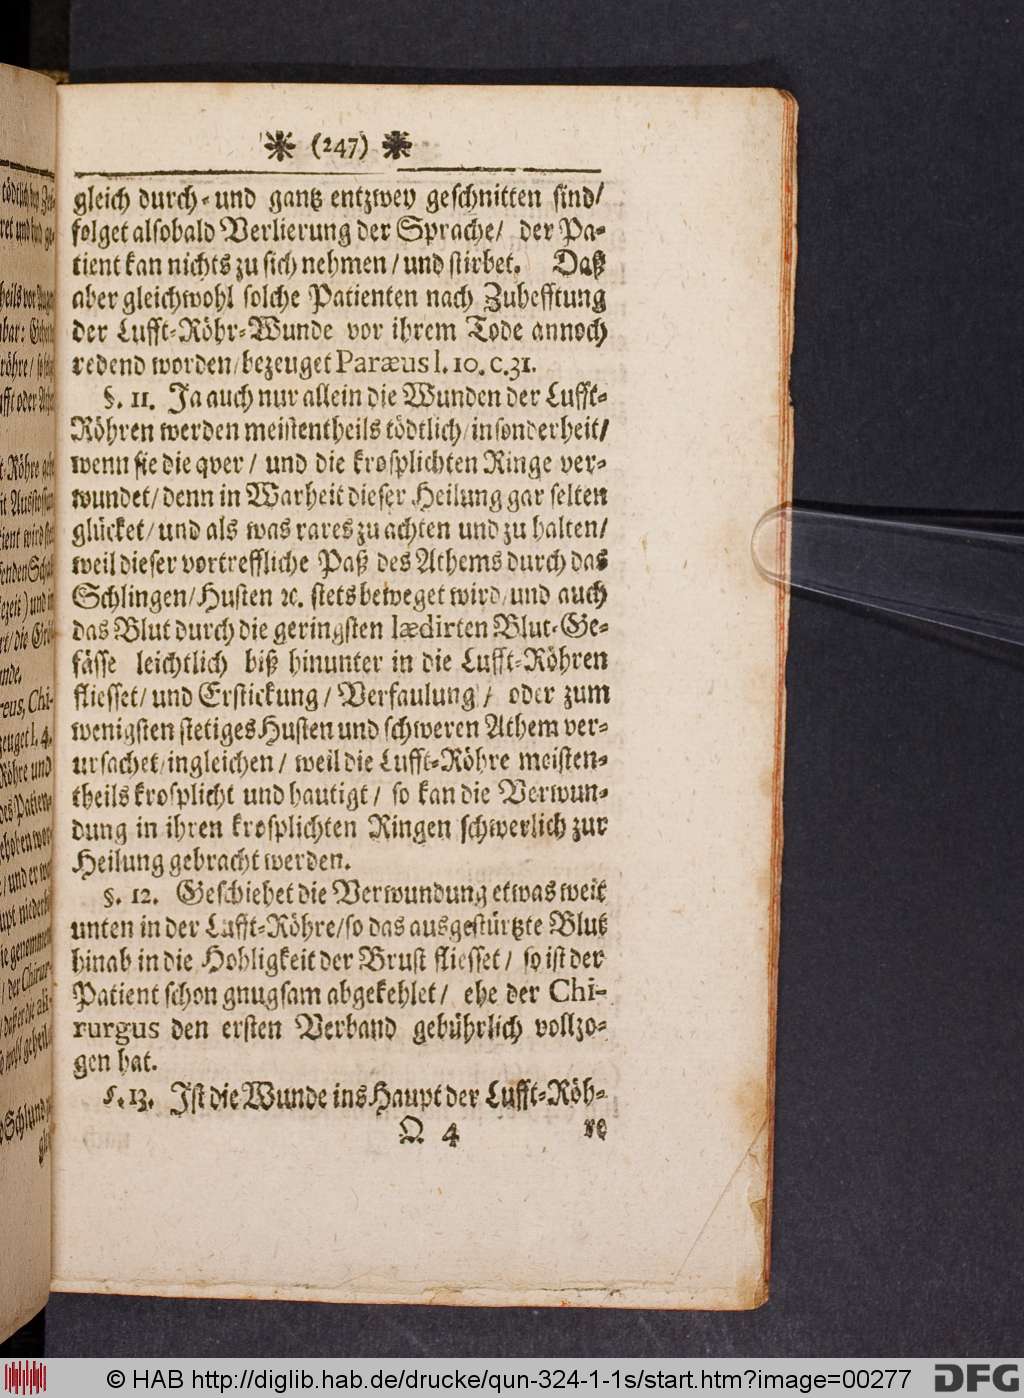 (247)
gleich durch- und gantz entzwey geschnitten sind/
folget alsobald Verlierung der Sprache/ der Pa-
tient kan nichts zu sich nehmen/ und stirbet. Daß
aber gleichwohl solche Patienten nach Zuhefftung
der Lufft-Röhr-Wunde vor ihrem Tode annoch
redend worden/ bezeuget Paræus l. 10. c. 31.
§. 11. Ja auch nur allein die Wunden der Lufft-
Röhren werden meistentheils tödtlich/ insonderheit/
wenn sie die qver/ und die krosplichten Ringe ver-
wundet/ denn in Warheit dieser Heilung gar selten
glücket/ und als was rares zu achten und zu halten/
weil dieser vortreffliche Paß des Athems durch das
Schlingen/ Husten ꝛc. stets beweget wird/ und auch
das Blut durch die geringsten lædirten Blut-Ge-
fässe leichtlich biß hinunter in die Lufft-Röhren
fliesset/ und Erstickung/ Verfaulung/ oder zum
wenigsten stetiges Husten und schweren Athem ver-
ursachet/ ingleichen/ weil die Lufft-Röhre meisten-
theils krosplicht und hautigt/ so kan die Verwun-
dung in ihren krosplichten Ringen schwerlich zur
Heilung gebracht werden.
§. 12. Geschiehet die Verwundung etwas weit
unten in der Lufft-Röhre/ so das ausgestürtzte Blut
hinab in die Hohligkeit der Brust fliesset/ so ist der
Patient schon gnugsam abgekehlet/ ehe der Chi-
rurgus den ersten Verband gebührlich vollzo-
gen hat.
§. 13. Ist die Wunde ins Haupt der Lufft-Röh-
Q 4 re
© HAB http://diglib.hab.de/drucke/qun-324-1-1s/start.htm?image=00277
DFG